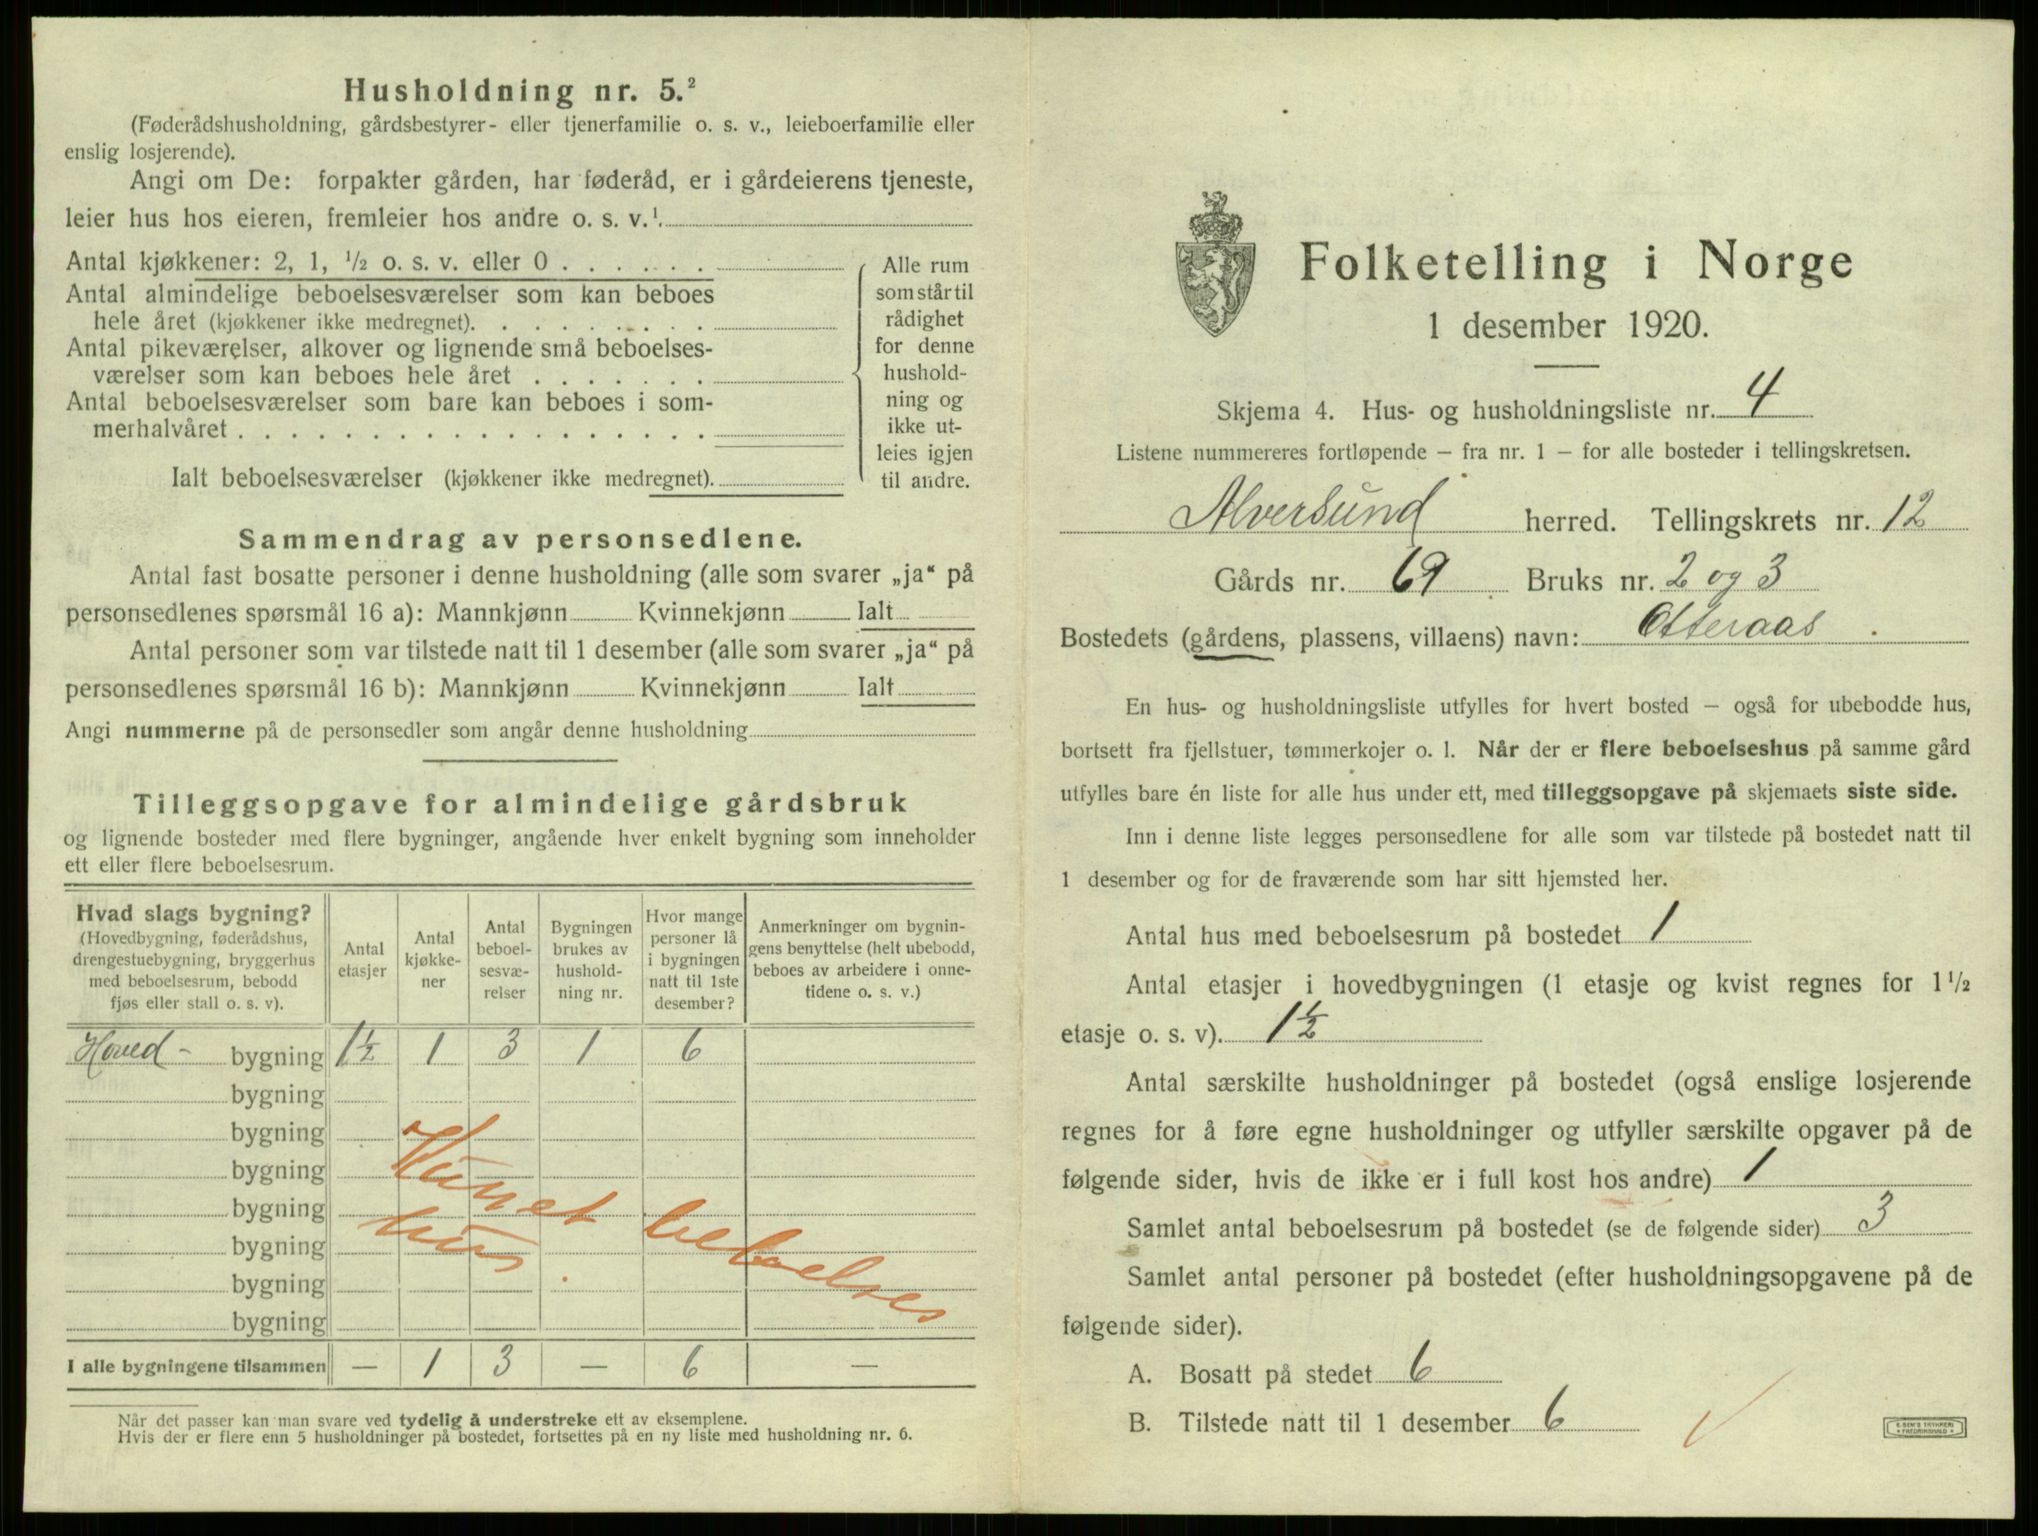 Husholdning nr. 5.²
(Føderådshusholdning, gårdsbestyrer- eller tjenerfamilie o. s. v., leieboerfamilie eller
enslig losjerende).
Angi om De: forpakter gården, har føderåd, er i gårdeierens tjeneste,
leier hus hos eieren, fremleier hos andre o. s. v.¹.
Antal kjøkkener: 2, 1, ½ o. s. v. eller 0 . . . . . .
Antal almindelige beboelsesværelser som kan beboes
hele året (kjøkkener ikke medregnet). . . . . . . . .
Antal pikeværelser, alkover og lignende små beboelses-
værelser som kan beboes hele året . . . . . . .
Antal beboelsesværelser som bare kan beboes i som-
merhalvåret . . . . . . . . . . . . . . . . . .
Ialt beboelsesværelser (kjøkkener ikke medregnet).
Alle rum
som står til
rådighet
for denne
hushold-
ning og
ikke ut-
leies igjen
til andre.
Sammendrag av personsedlene.
Antal fast bosatte personer i denne husholdning (alle som svarer „ja“ på
personsedlenes spørsmål 16 a): Mannkjønn Kvinnekjønn Ialt
Antal personer som var tilstede natt til 1 desember (alle som svarer „ja“ på
personsedlenes spørsmål 16 b): Mannkjønn Kvinnekjønn Ialt
Angi nummerne på de personsedler som angår denne husholdning
Tilleggsopgave for almindelige gårdsbruk
og lignende bosteder med flere bygninger, angående hver enkelt bygning som inneholder
ett eller flere beboelsesrum.
Hvad slags bygning?
(Hovedbygning, føderådshus,
drengestuebygning, bryggerhus
med beboelsesrum, bebodd
fjøs eller stall o. s. v).
Antal
etasjer
Antal
kjøkke-
ner
Antal
beboel-
sesvæ-
relser
Bygningen
brukes av
hushold-
ning nr.
Hvor mange
personer lå
i bygningen
natt til 1ste
desember?
Anmerkninger om bygnin-
gens benyttelse (helt ubebodd,
beboes av arbeidere i onne-
tidene o. s. v.)
Hoved- bygning 1½ 1 3 1 6
bygning
bygning
bygning
bygning
bygning
bygning
bygning
Kun et beboelses
hus.
I alle bygningene tilsammen — 1 3 — 6 —
Når det passer kan man svare ved tydelig å understreke ett av eksemplene.
Hvis der er flere enn 5 husholdninger på bostedet, fortsettes på en ny liste med husholdning nr. 6.
Folketelling i Norge
1 desember 1920.
Skjema 4. Hus- og husholdningsliste nr. 4
Listene nummereres fortløpende – fra nr. 1 – for alle bosteder i tellingskretsen.
Alversund herred. Tellingskrets nr. 12
Gårds nr. 69 Bruks nr. 2 og 3
Bostedets (gårdens, plassens, villaens) navn: Otteraas
En hus- og husholdningsliste utfylles for hvert bosted – også for ubebodde hus,
bortsett fra fjellstuer, tømmerkojer o. l. Når der er flere beboelseshus på samme gård
utfylles bare én liste for alle hus under ett, med tilleggsopgave på skjemaets siste side.
Inn i denne liste legges personsedlene for alle som var tilstede på bostedet natt til
1 desember og for de fraværende som har sitt hjemsted her.
Antal hus med beboelsesrum på bostedet 1
Antal etasjer i hovedbygningen (1 etasje og kvist regnes for 1½
etasje o. s. v). 1½
Antal særskilte husholdninger på bostedet (også enslige losjerende
regnes for å føre egne husholdninger og utfyller særskilte opgaver på de
følgende sider, hvis de ikke er i full kost hos andre) 1
Samlet antal beboelsesrum på bostedet (se de følgende sider) 3
Samlet antal personer på bostedet (efter husholdningsopgavene på de
følgende sider).
A. Bosatt på stedet 6
B. Tilstede natt til 1 desember 6